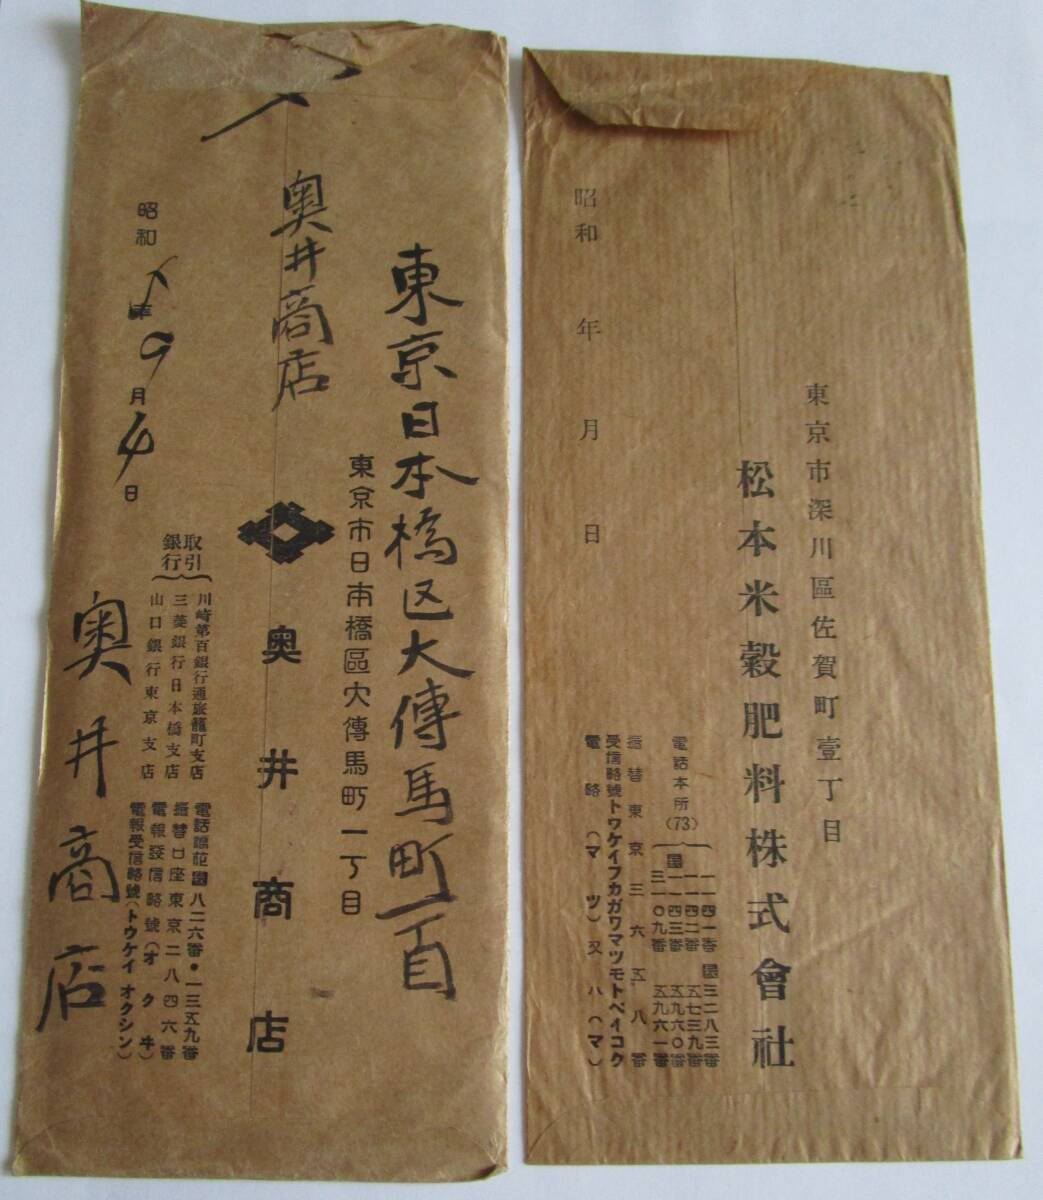 東京日本橋区大傳馬町一丁目
東京市日本橋區大傳馬町一丁目
奥井商店
奥井商店
取引銀行
川崎第百銀行通旅籠町支店
三菱銀行日本橋支店
山口銀行東京支店
電話浪花 八二六番・一三五九番
振替口座東京二八四六番
電報發信略號(オクヰ)
電報受信略號(トウケイオクシン)
昭和 年9月4日
奥井商店
東京市深川區佐賀町壹丁目
松本米穀肥料株式會社
電話本所(73)
一一四一番 長三二八三番
一一四二番 五七三九番
長一一四三番 五九六〇番
三一〇九番 五九六一番
振替東京三六五八番
受信略號トウケイフカガワマツモトベイコク
電略(マツ)又ハ(マ)
昭和 年 月 日